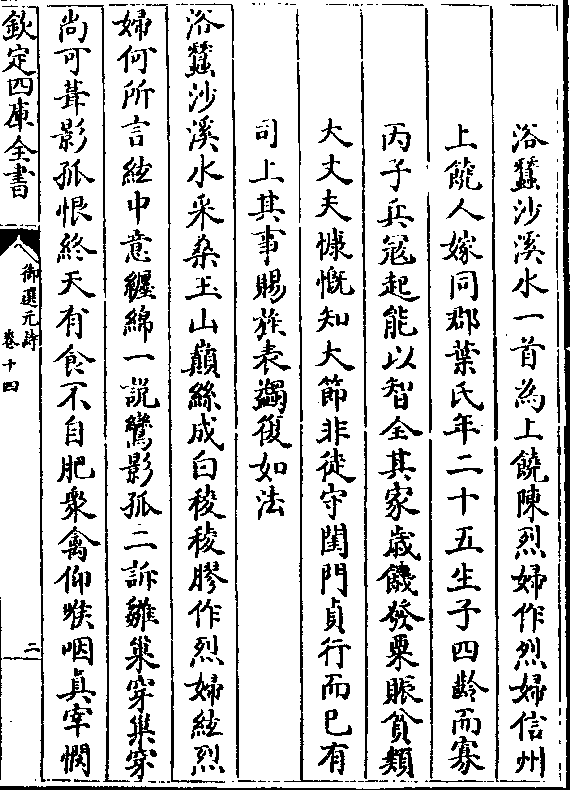 浴蠶沙溪水一首為上饒陳烈婦作烈婦信州
上饒人嫁同郡葉氏年二十五生子四齡而寡
丙子兵寇起能以智全其家歲饑發粟賑貧類
大丈夫慷慨知大節非徒守閨門貞行而已有
司上其事賜旌表蠲復如法
浴蠶沙溪水采桑玉山巔絲成白稜稜膠作烈婦絃烈
婦何所言絃中意纏綿一說鸞影孤二訴雛巢穿巢穿
尚可葺影孤恨終天有食不自肥衆禽仰喉咽真宰憫
欽定四庫全書
御選元詩
卷十四
二